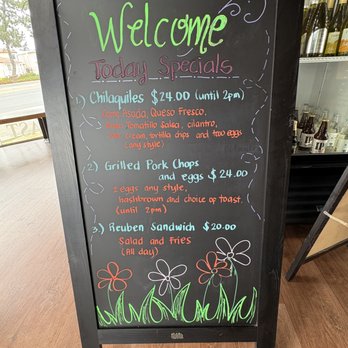 Welcome
Today Specials
1) Chilaquiles $24.00 (until 2pm)
Carne Asada, Queso Fresco,
Tomatillo Salsa, cilantro,
Cream, tortilla chips and two eggs
(any style)
2) Grilled Pork Chops
and eggs $24.00
2 eggs any style,
hashbrown and choice of toast.
(until 2pm)
3) Reuben Sandwich $20.00
Salad and Fries
(All day)